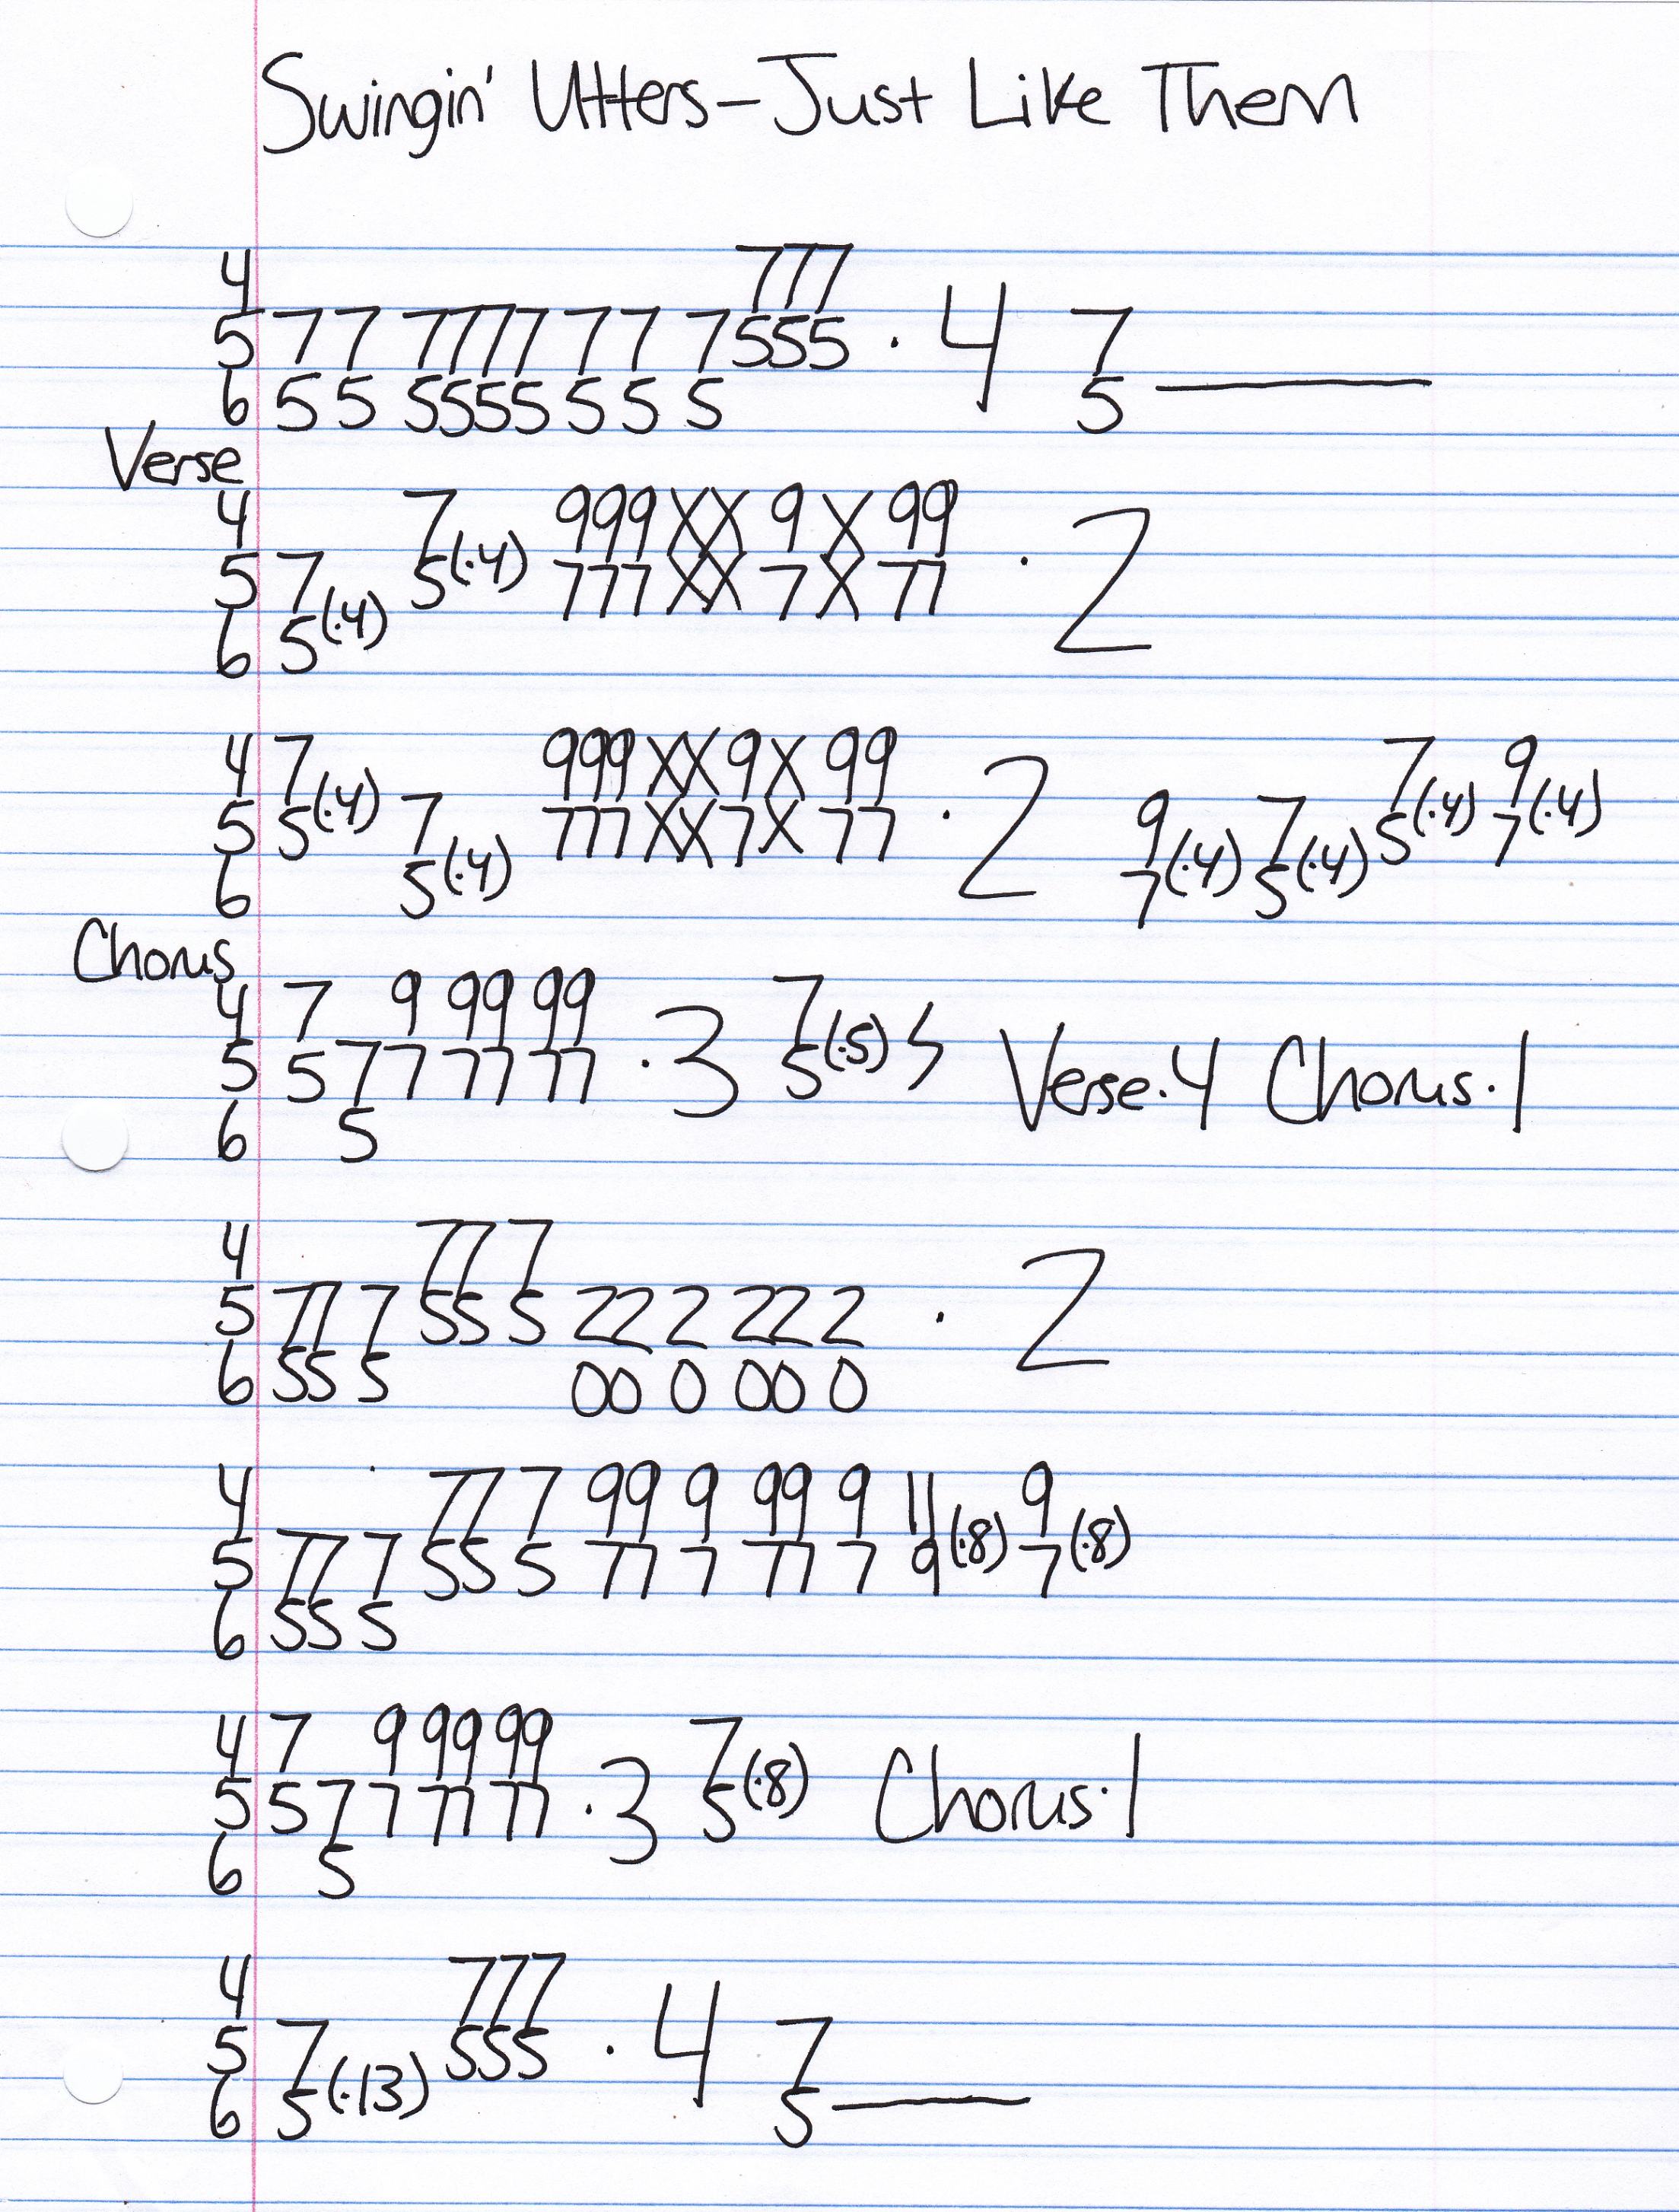 Swingin' Utters-Just Like Them
4 777
5 77 7777 7 7 7555 · 4 7
6 55 5555 5 5 5 5
Verse
4 7 999XX 9 X 99
5 7 5(·4) 777XX 7 X 77 · 2
6 5(·4)
4 7 999XX9X 99 7 9
5 5(·4) 7 777XX7X 77 · 2 9 7 5(·4) 7(·4)
6 5(·4) 7(·4) 5(·4)
Chorus
4 7 9 99 99 7
5 5 7 7 77 77 · 3 5(·5) Verse·4 Chorus·1
6 5
4 77 7
5 77 7 55 5 22 2 22 2 · 2
6 55 5 00 0 00 0
4 77 7 99 9 99 9 11 9
5 77 7 55 5 77 7 77 7 9(·8) 7(·8)
6 55 5
4 7 9 99 99 7
5 5 7 7 77 77 · 3 5(·8) Chorus·1
6 5
4 777
5 7 555 · 4 7
6 5(·13) 5